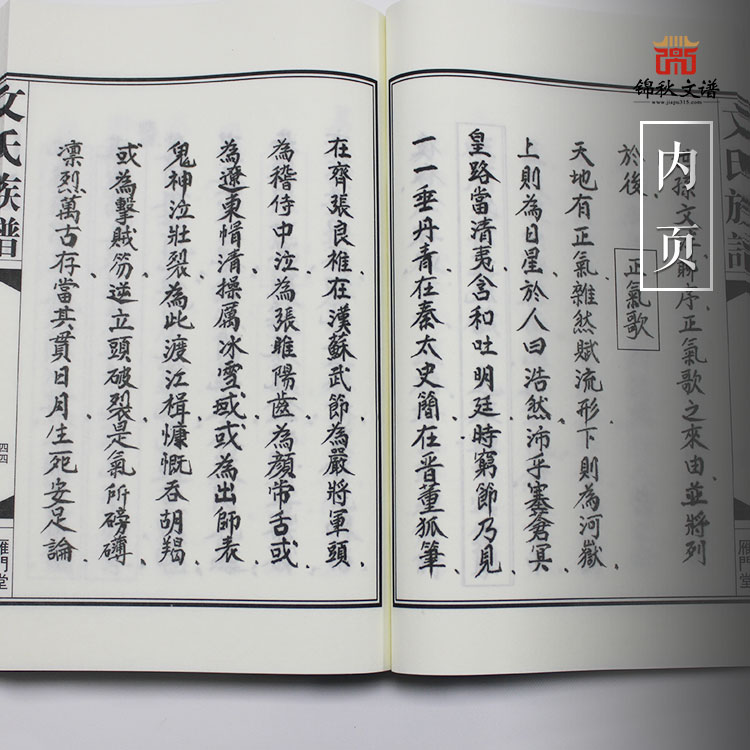 锦秋文谱
www.jiapu315.com
内页
文氏族譜
雁門堂
序正氣歌之來由並將列
於後
正氣歌
天地有正氣雜然賦流形下則為河嶽
上則為日星於人曰浩然沛乎塞蒼冥
皇路當清夷含和吐明廷時窮節乃見
一一垂丹青在秦太史簡在晋董狐筆
在齊張良椎在漢蘇武節為嚴將軍頭
為稽侍中泣為張睢陽齒為顏常舌或
為遼東帽清操厲冰雪或或為出師表
鬼神泣壯裂為此渡江楫慷慨吞胡羯
或為擊賊笏逆立頭破裂是氣所磅礡
凛烈萬古存當其貫日月生死安足論
文氏族譜
四四
雁門堂